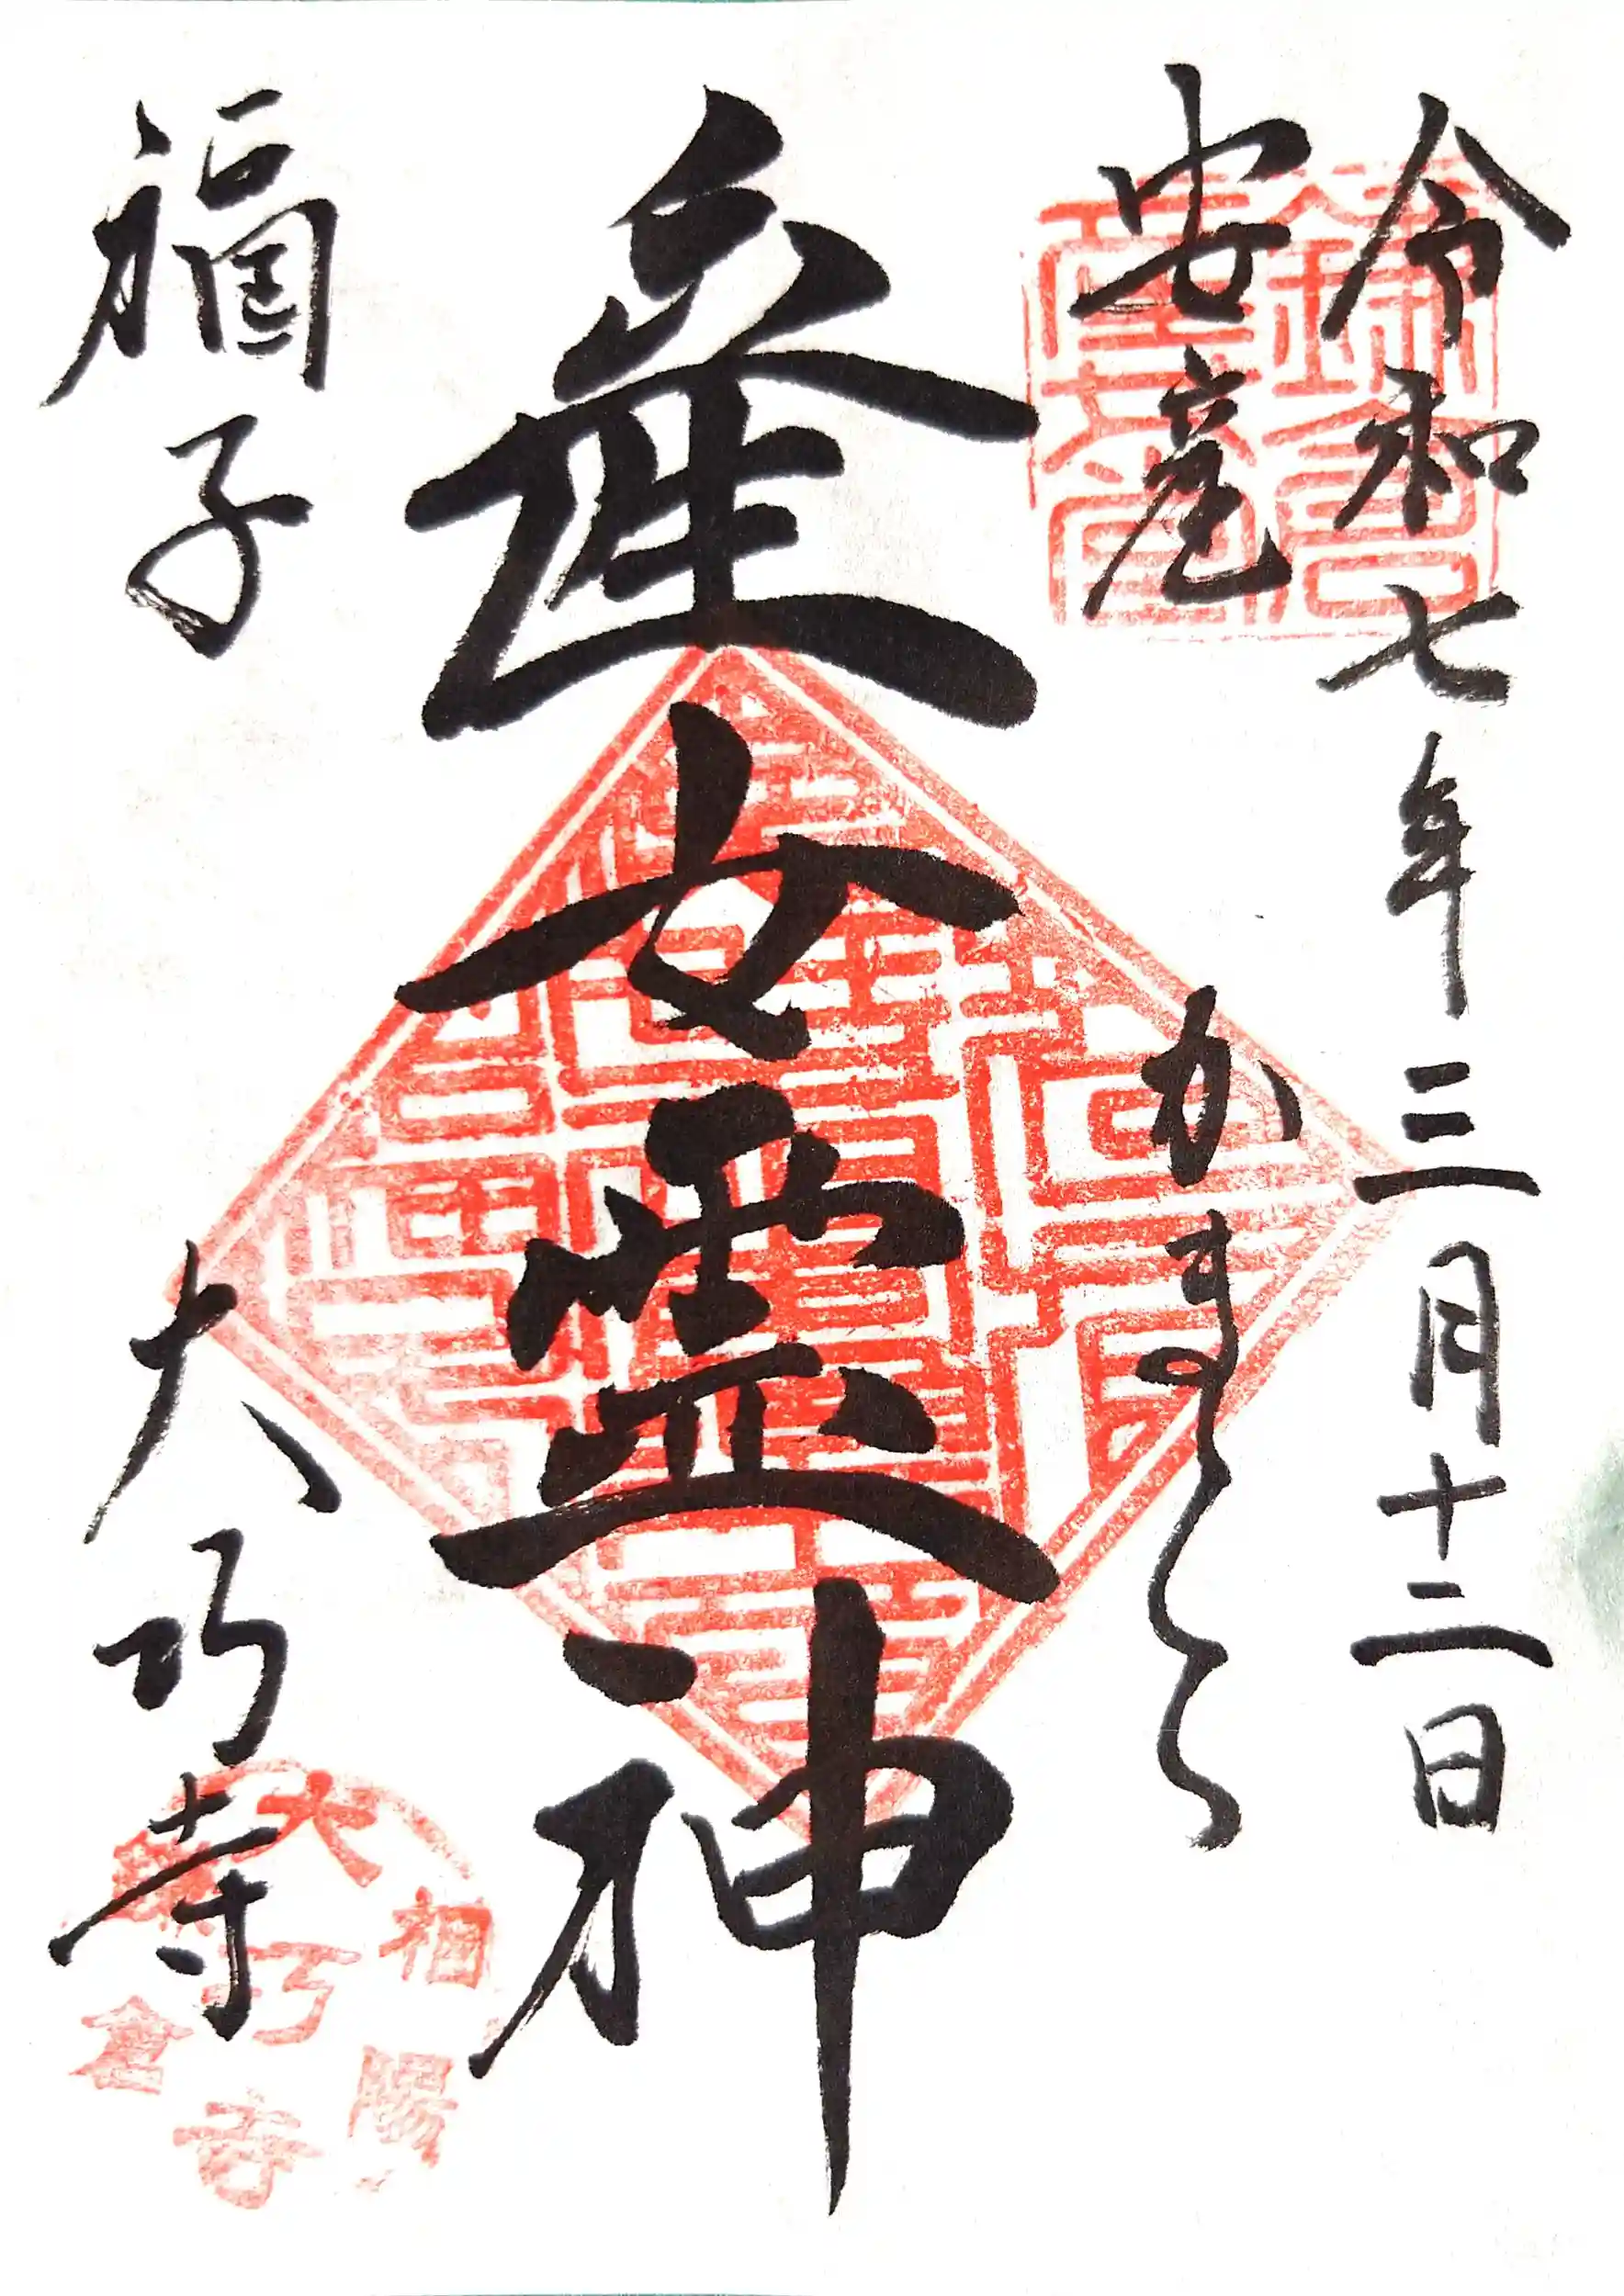 令和七年三月十二日
安産
かまくら
産女霊神
福子
大巧寺
鎌倉
大巧寺